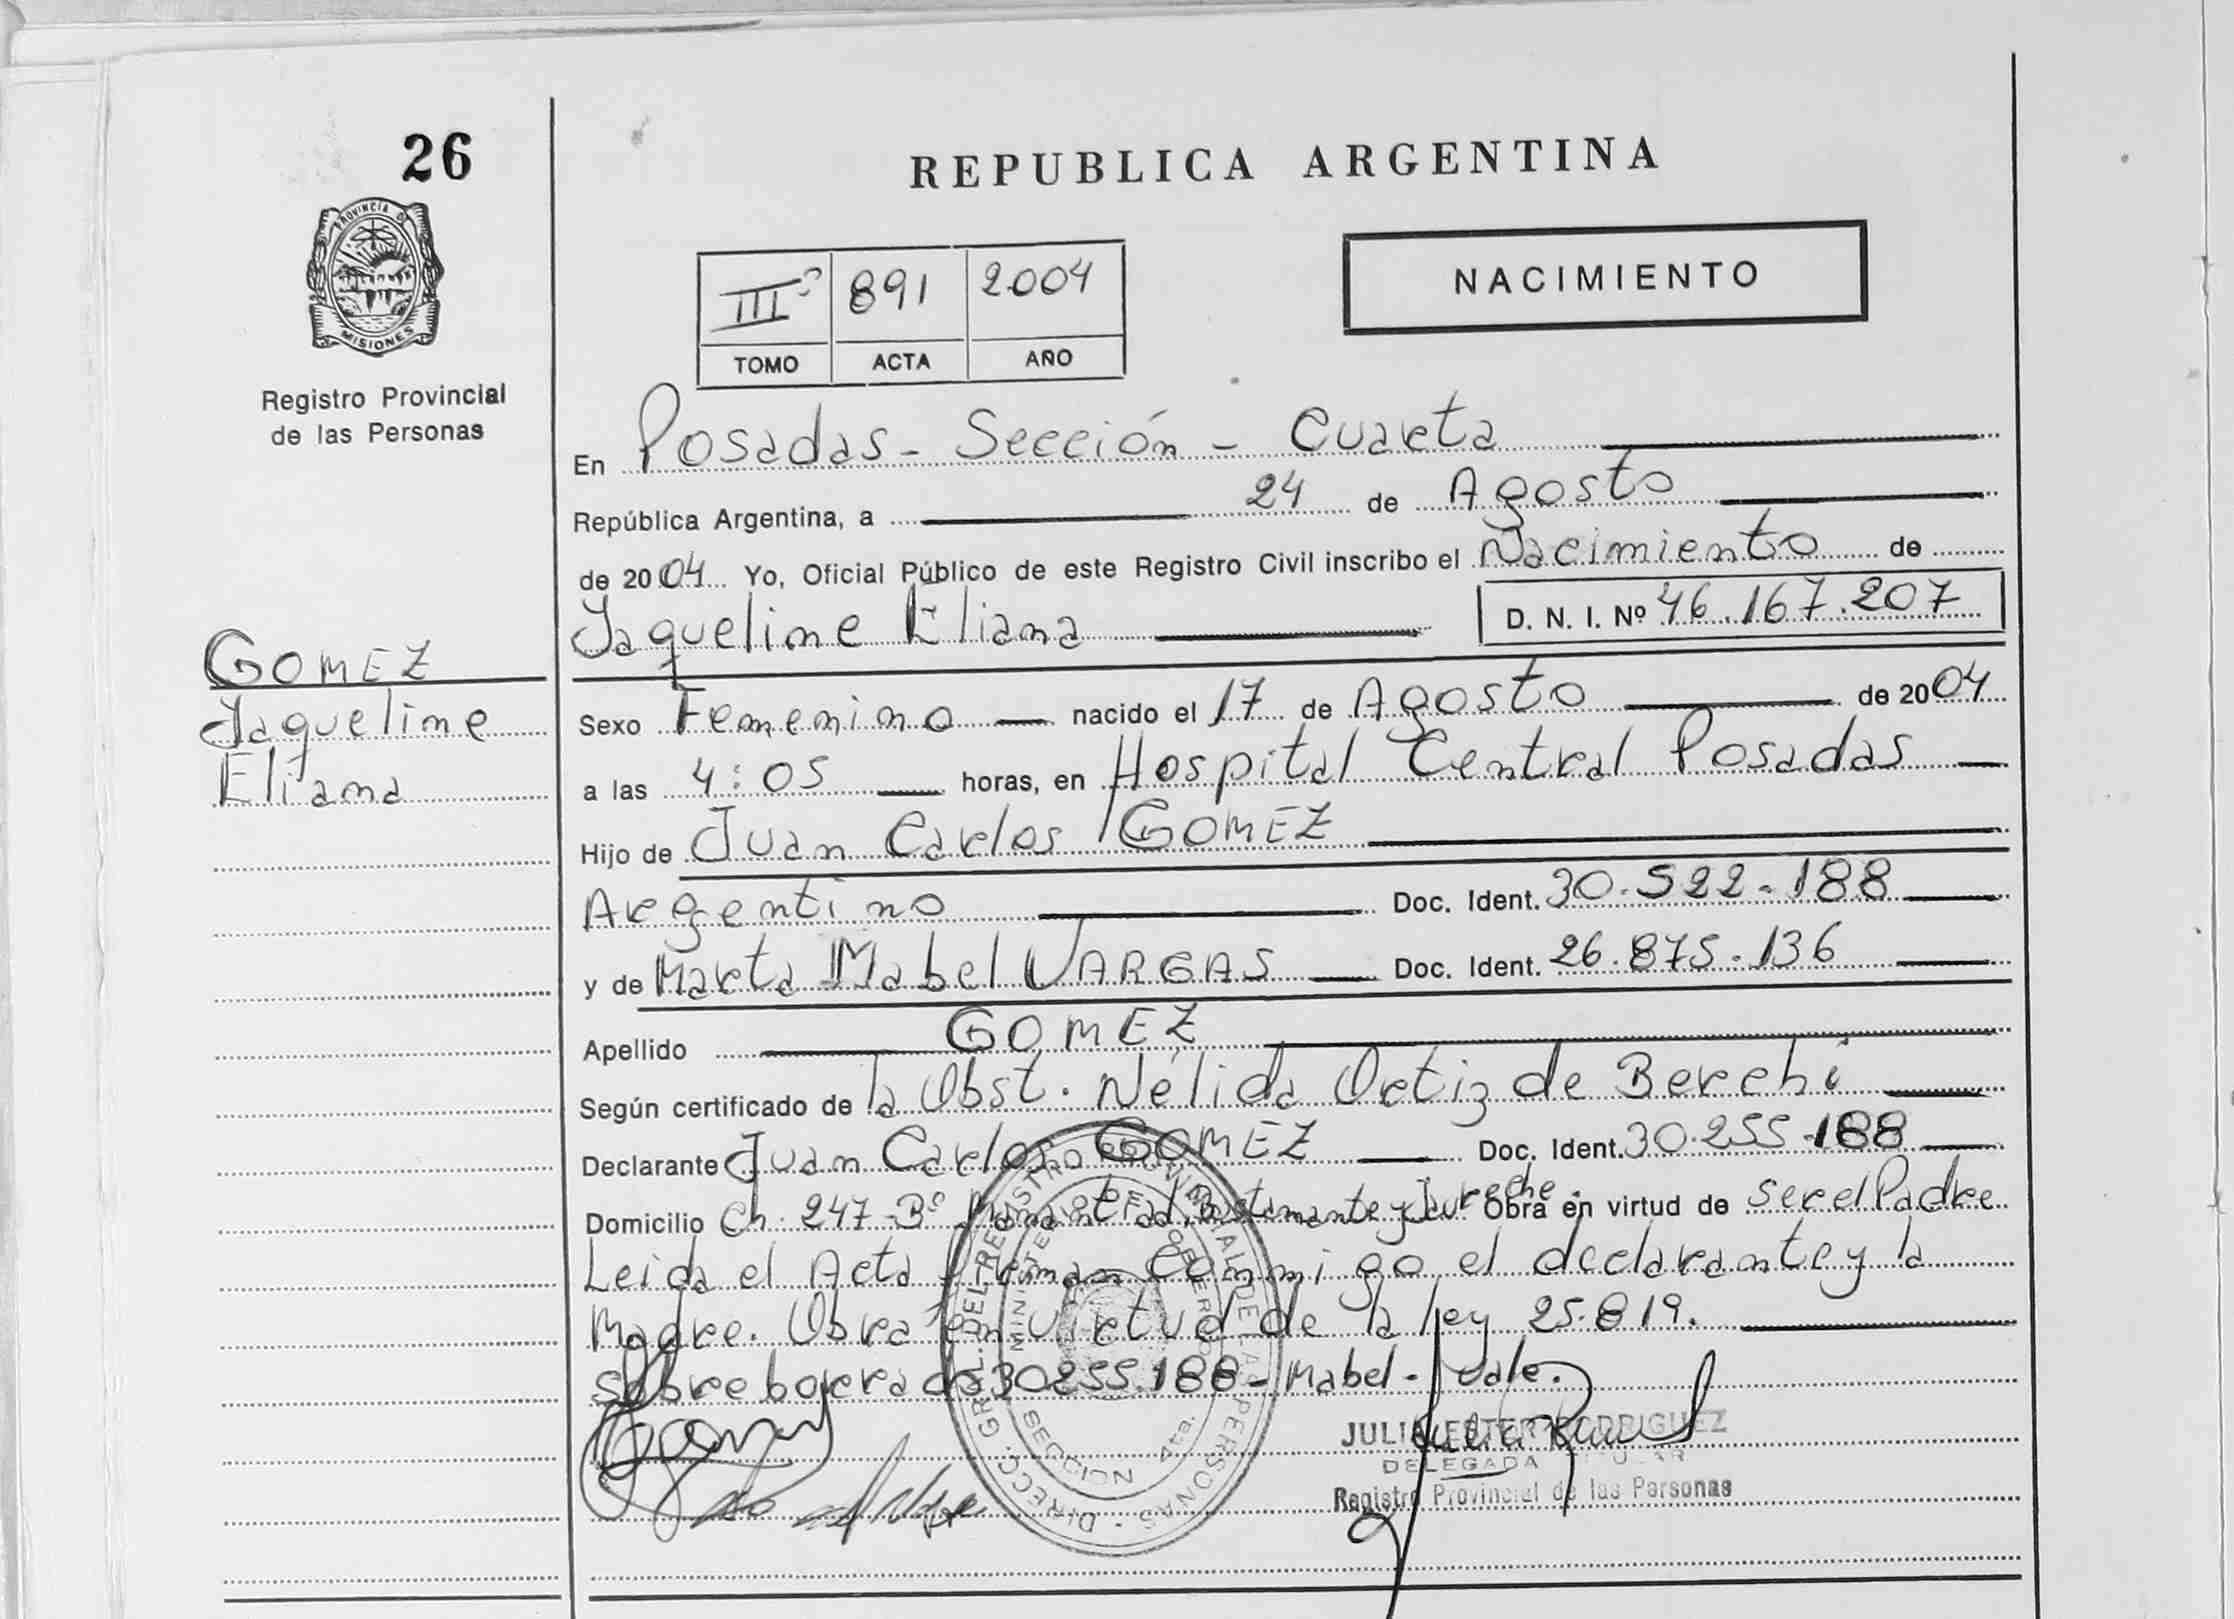 26
REPUBLICA ARGENTINA
PROVINCIA DE
MISIONES
Registro Provincial
de las Personas
III° 891 2004
TOMO ACTA AÑO
NACIMIENTO
En Posadas - Sección - Cuarta
República Argentina, a 24 de Agosto
de 2004 Yo, Oficial Público de este Registro Civil inscribo el Nacimiento de
Jaqueline Eliana D. N. I. Nº 46.167.207
GOMEZ
Jaqueline
Eliana
Sexo Femenino nacido el 17 de Agosto de 2004
a las 4:05 horas, en Hospital Central Posadas
Hijo de Juan Carlos GOMEZ
Argentino Doc. Ident. 30.522.188
y de Marta Mabel VARGAS Doc. Ident. 26.875.136
Apellido GOMEZ
Según certificado de la Obst. Nélida Ortiz de Berchi
Declarante Juan Carlos GOMEZ Doc. Ident. 30.255.188
Domicilio Ch. 247-Bº Bustamante y Jureche. Obra en virtud de ser el Padre
Leida el Acta Firman Conmigo el declarante y la
Madre. Obra en virtud de la ley 25.819.
Sobre borrado 30255.188 - Mabel - Vale.
DIRECC. GRAL. DEL REGISTRO PROVINCIAL DE LAS PERSONAS
MINISTERIO DE GOBIERNO
SECCION 4ta.
JULIA ESTER RODRIGUEZ
DELEGADA TITULAR
Registro Provincial de las Personas